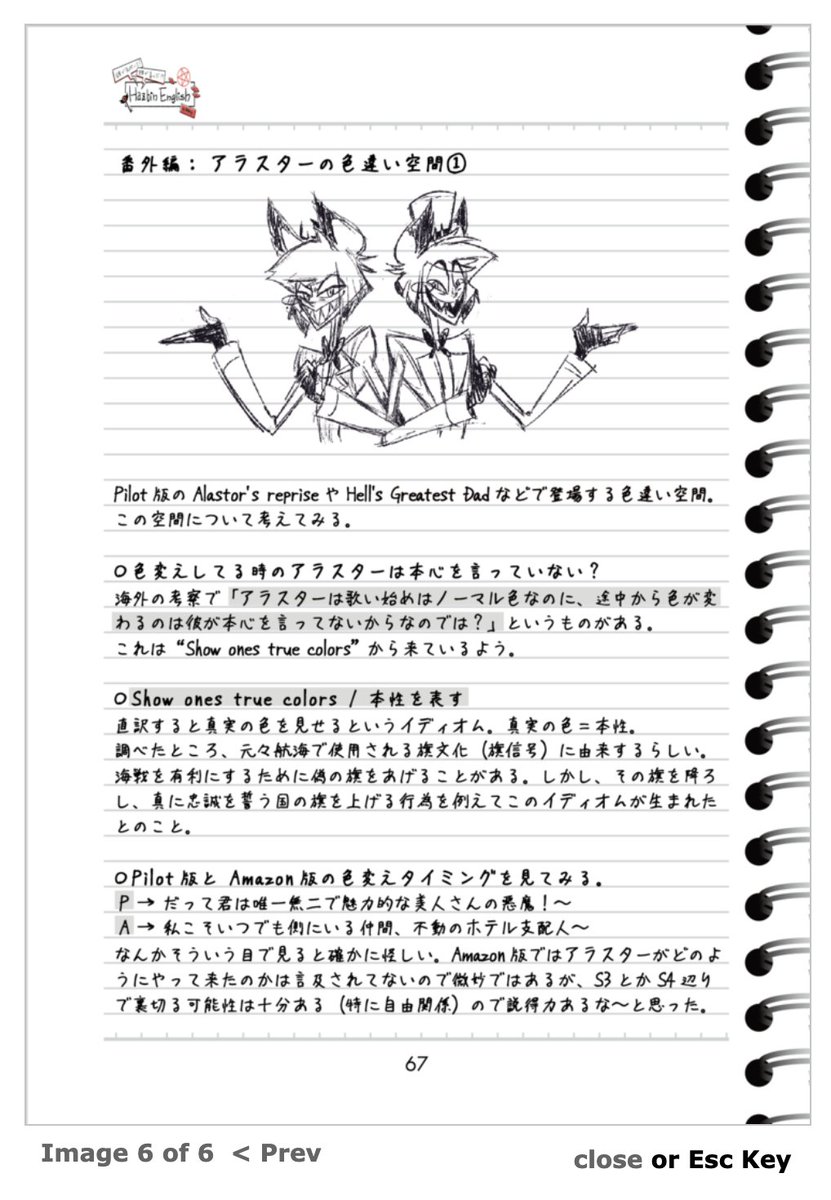 Hazbin English
番外編：アラスターの色違い空間①
Pilot 版の Alastor's reprise や Hell's Greatest Dad などで登場する色違い空間。
この空間について考えてみる。
〇色変えしてる時のアラスターは本心を言っていない？
海外の考察で「アラスターは歌い始めはノーマル色なのに、途中から色が変
わるのは彼が本心を言ってないからなのでは？」というものがある。
これは “Show ones true colors” から来ているよう。
〇Show ones true colors / 本性を表す
直訳すると真実の色を見せるというイディオム。真実の色＝本性。
調べたところ、元々航海で使用される旗文化（旗信号）に由来するらしい。
海戦を有利にするために偽の旗をあげることがある。しかし、その旗を降ろ
し、真に忠誠を誓う国の旗を上げる行為を例えてこのイディオムが生まれた
とのこと。
〇Pilot 版と Amazon 版の色変えタイミングを見てみる。
P → だって君は唯一無二で魅力的な美人さんの悪魔！～
A → 私こそいつでも側にいる仲間、不動のホテル支配人～
なんかそういう目で見ると確かに怪しい。Amazon 版ではアラスターがどのよ
うにやって来たのかは言及されてないので微妙ではあるが、S3 とか S4 辺り
で裏切る可能性は十分ある（特に自由関係）ので説得力あるな～と思った。
67
Image 6 of 6 < Prev
close or Esc Key